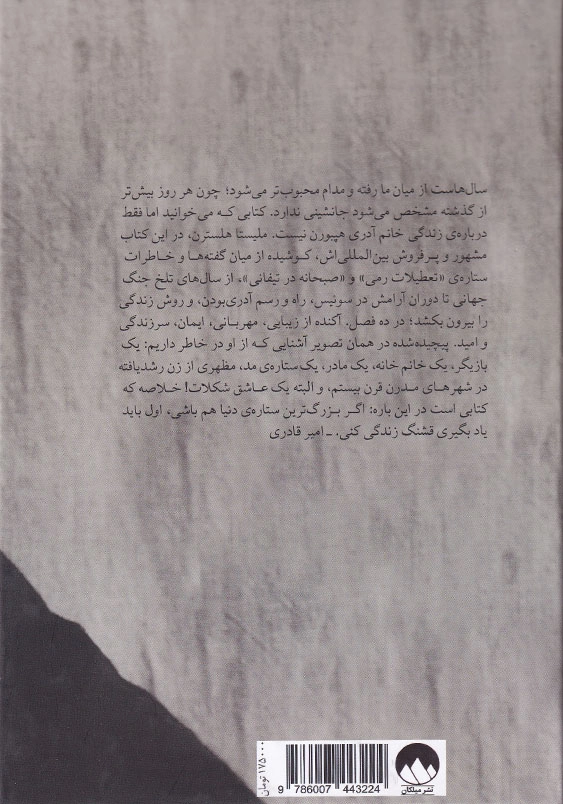 سال‌هاست از میان ما رفته و مدام محبوب‌تر می‌شود؛ چون هر روز بیش‌تر
از گذشته مشخص می‌شود جانشینی ندارد. کتابی که می‌خوانید اما فقط
درباره‌ی زندگی خانم آدری هپبورن نیست. ملیسا هلسترن، در این کتاب
مشهور و پرفروش بین‌المللی‌اش، کوشیده از میان گفته‌ها و خاطرات
ستاره‌ی «تعطیلات رمی» و «صبحانه در تیفانی»، از سال‌های تلخ جنگ
جهانی تا دوران آرامش در سوئیس، راه و رسم آدری‌بودن، و روش زندگی
را بیرون بکشد؛ در ده فصل. آکنده از زیبایی، مهربانی، ایمان، سرزندگی
و امید. پیچیده‌شده در همان تصویر آشنایی که از او در خاطر داریم: یک
بازیگر، یک خانم خانه، یک مادر، یک ستاره‌ی مد، مظهری از زن رشدیافته
در شهرهای مدرن قرن بیستم، و البته یک عاشق شکلات! خلاصه که
کتابی است در این باره: اگر بزرگ‌ترین ستاره‌ی دنیا هم باشی، اول باید
یاد بگیری قشنگ زندگی کنی. ـ امیر قادری
۱۷۵۰۰۰ تومان
9 786007 443224
نشر میلکان